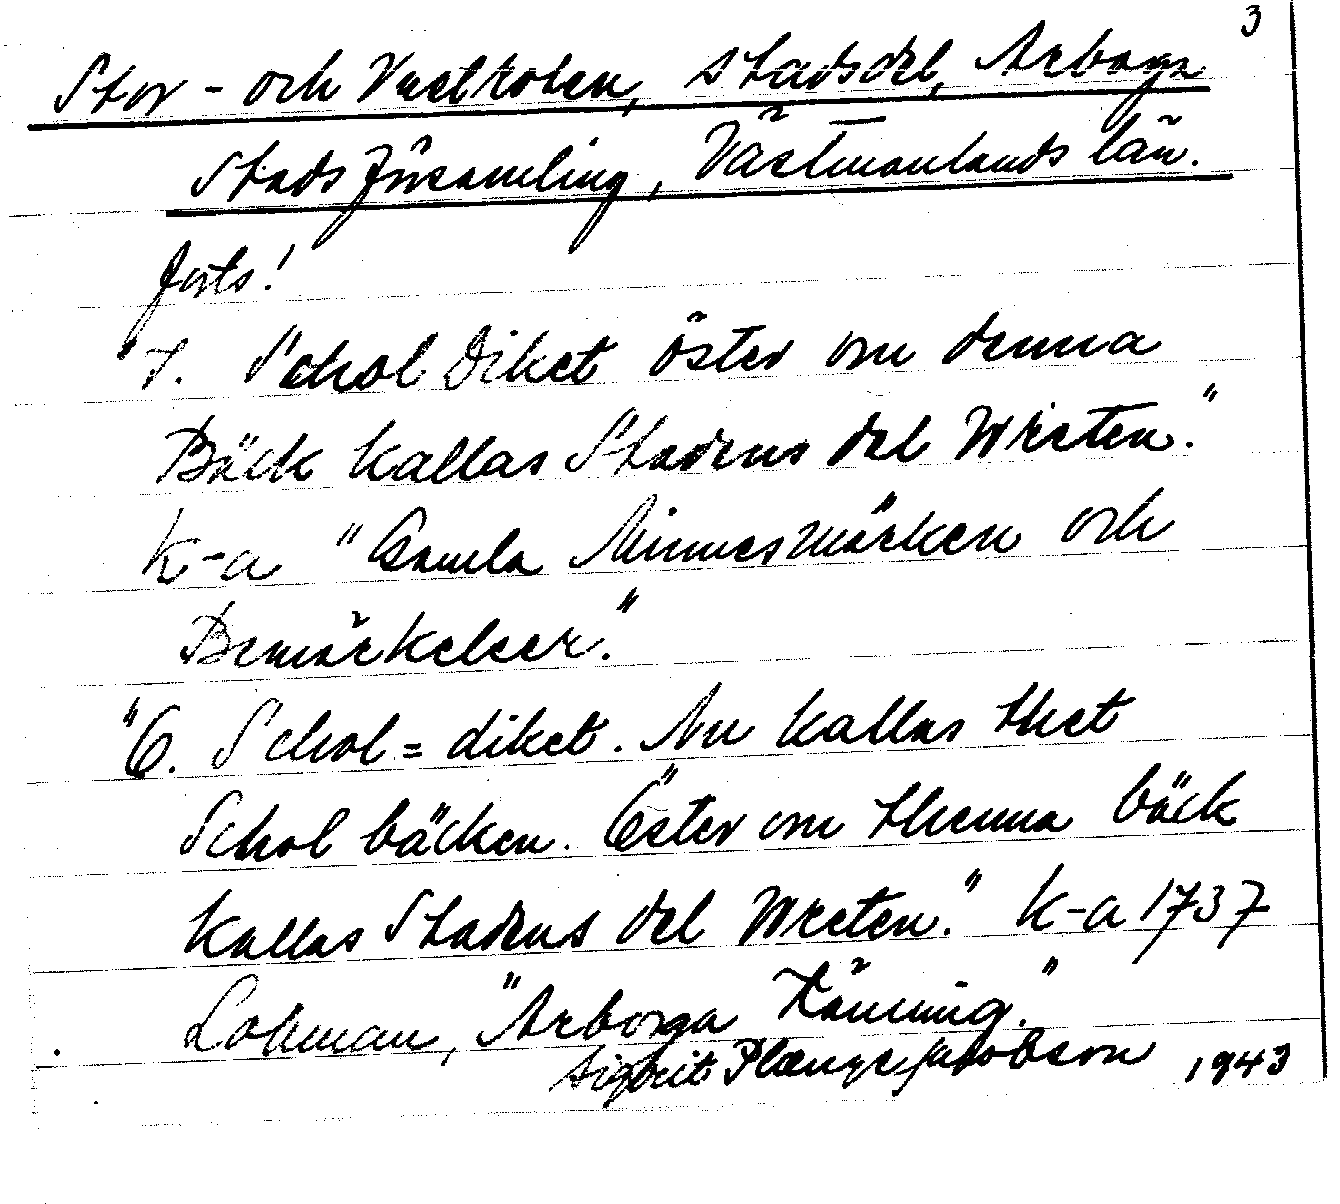 3
Stor- och Västkolen, stadsdel, Arboga
Stadsförsamling, Västmanlands län.
forts!
"7. Schol diket öster om denna
Bäck kallas Stadens del Wreten."
K-a "Gamla Minnesmärken och
Bemärkelser."
"6. Schol=diket. Nu kallas thet
Schol bäcken. Öster om thenna bäck
kallas Stadens del Wreten." K-a 1737
Lohman, "Arborga Känning."
Sigbrit Plænge Jacobson 1943